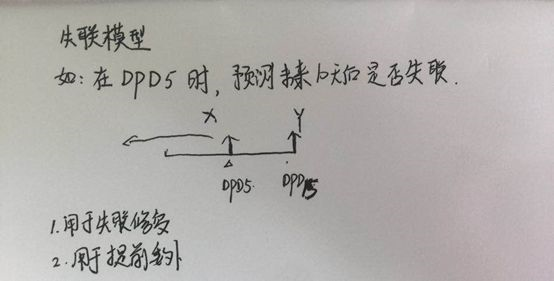 失联模型
如:在DPD5时,预测未来10天后是否失联.
X Y
DPD5. DPD15
1.用于失联修复
2.用于提前委外